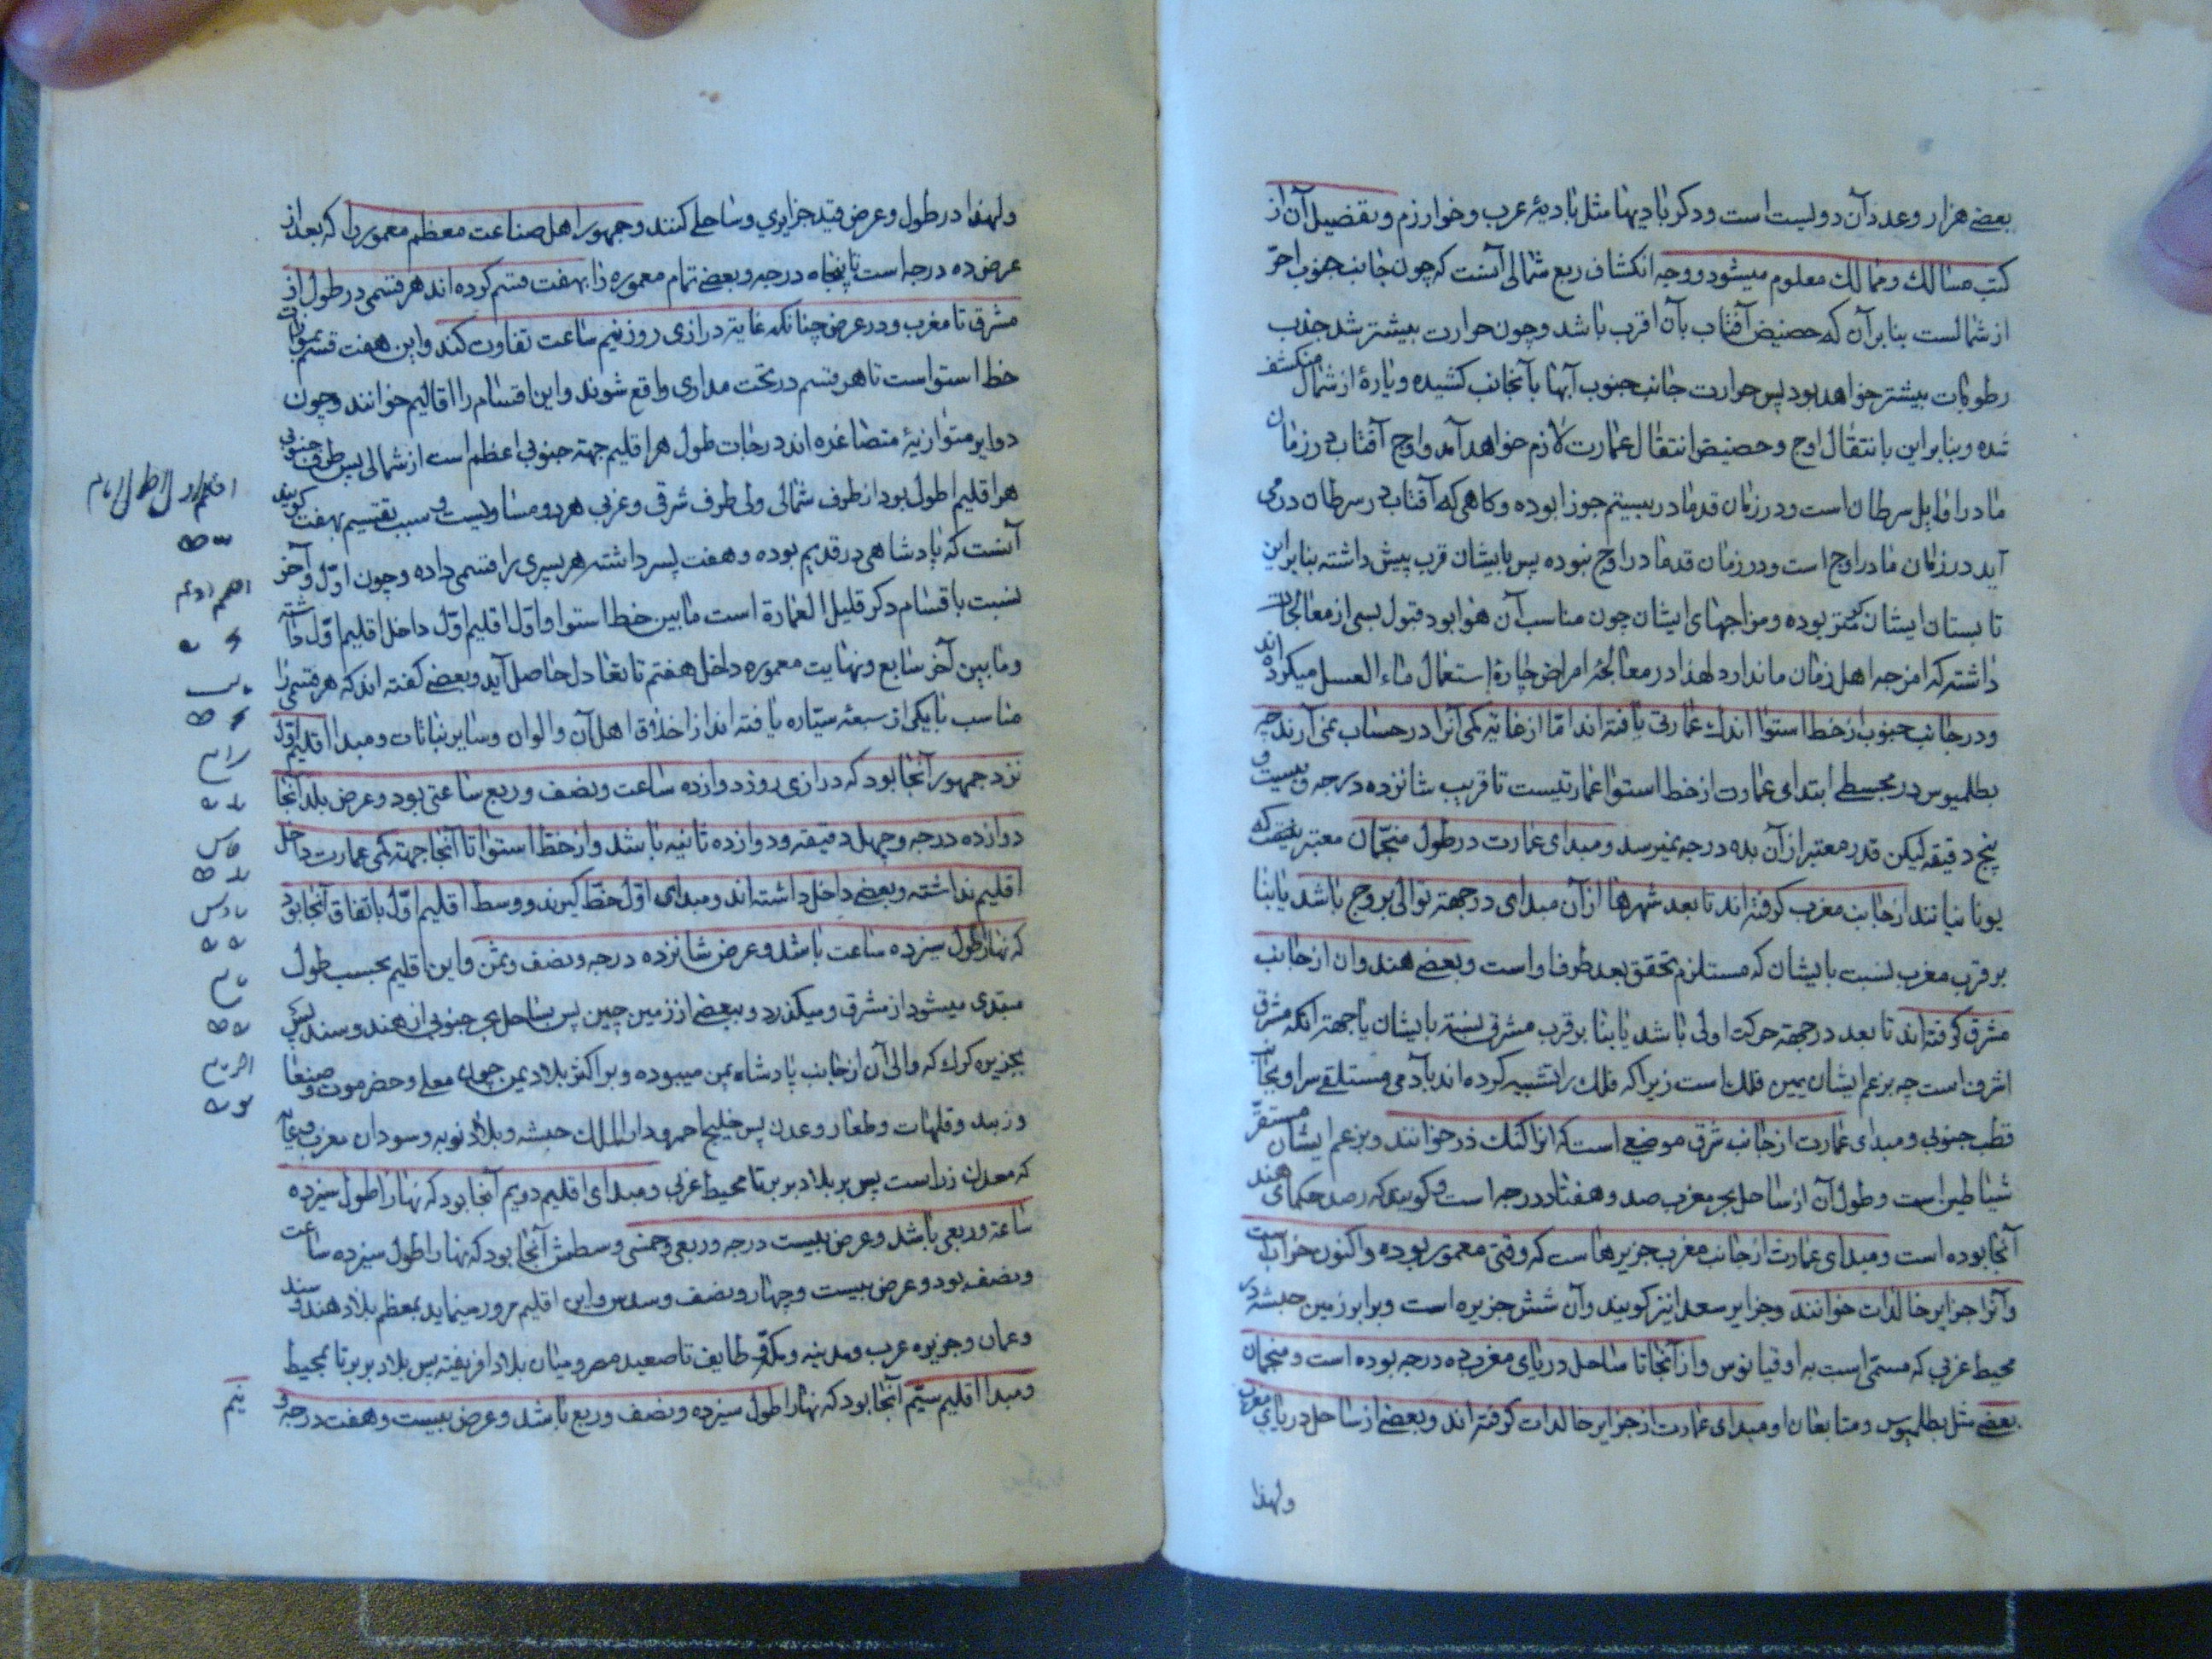 بعضے هزار و عدد آن دویست است و دکر بادیها مثل بادیهٔ عرب و خوارزم و تفضیل آن از
کتب مسالك و ممالك معلوم میشود و وجه انکشاف ربع شمالی آنست که چون جانب جنوب احرّ
از شمالست بنابر آن که حضیض آفتاب بآن اقرب باشد و چون حرارت بیشتر شد جذب
رطوبات بیشتر خواهد بود پس حرارت جانب جنوب آبها بآنجانب کشیده و پارهٔ از شمال منکشف
شده و بنابر این بانتقال اوج و حضیض انتقال عمارت لازم خواهد آمد و اوج آفتاب در زمان
ما در اوایل سرطان است و در زمان قدما در بیستم جوزا بوده و کاهی که آفتاب در سرطان در می
آید در زمان ما در اوج است و در زمان قدما در اوج نبوده پس بایشان قرب پیش داشته بنابراین
تابستان ایشان کمتر بوده و مزاجهای ایشان چون مناسب آن هوا بود قبول بسی از معالجات
داشته که امزجه اهل زمان ما ندارد لهذا در معالجهٔ امراض چارهٔ استعمال ماء العسل میکرده اند
و در جانب جنوب از خط استوا اندك عمارتی یافته اند امّا از غایة کمی آنرا در حساب نمی آرند چه
بطلمیوس در مجسطے ابتدای عمارت از خط استوا عمارتیست تا قریب شانزده درجه و بیست و
پنج دقیقه لیکن قدر معتبر از آن بده درجه نمیرسد و مبدای عمارت در طول منجّمان معتبر
یونانیانند از جانب مغرب کرفته اند تا بعد شهرها از آن مبدای در جهة توالی بروج باشد یا بنا
بر قرب مغرب نسبت بایشان که مستلزم تحقق بعد طرفا و است و بعضے هندوان از جانب
مشرق کرفته اند تا بعد در جهة حرکت اولی باشد یا بنا بر قرب مشرق نسبة بایشان یا جهة آنکه مشرق
اشرف است چه بزعم ایشان یمین فلك است زیرا که فلك را تشبیه کرده اند بآدمی مستلقے سر او بجانب
قطب جنوبی و مبدای عمارت از جانب شرق موضعے است که انرا کنك در خوانند و بزعم ایشان مستقرّ
شیاطین است و طول آن از ساحل بحر مغرب صد و هفتاد درجه است و کویند که رصد حکمای هند
آنجا بوده است و مبدای عمارت از جانب مغرب جزیرهاست که وقتی معمور بوده و اکنون خرابست
و آنرا جزایر خالدات خوانند و جزایر سعدا نیز کویند و آن شش جزیره است و برابر زمین حبشه در
محیط غربی که مسمّی است به اوقیانوس و از آنجا تا ساحل دریای مغرب ده درجه بوده است و منجمان
بعضے مثل بطلمیوس و متابعان او مبدای عمارت از جزایر خالدات کرفته اند و بعضے از ساحل دریای مغرب
ولهذا
ولهذا در طول و عرض قید جزایری و ساحلے کنند و جمهور اهل صناعت معظم معموره را که بعد از
عرض ده درجه است تا پنجاه درجه و بعضے تمام معموره را بهفت قسم کرده اند هر قسمی در طول از
مشرق تا مغرب و در عرض چنانکه غایة درازی روز نیم ساعت تفاوت کند و این هفت قسم بموازات
خط استواست تا هر قسم در تحت مداری واقع شوند و این اقسام را اقالیم خوانند و چون
دوایر متوازیهٔ متصاغره اند درجات طول هر اقلیم جهة جنوبی اعظم است از شمالی پس طرف جنوبی
هر اقلیم اطول بود از طرف شمالی ولی طرف شرقی و غربی هر دو مساویست و سبب تقسیم بهفت کویند
آنست که پادشاهی در قدیم بوده و هفت پسر داشته هر پسری را قسمی داده و چون اوّل و آخر
نسبت باقسام دکر قلیل العمارة است مابین خط استوا و اوّل اقلیم اوّل داخل اقلیم اوّل داشته
و مابین آخر سابع و نهایت معموره داخل هفتم تا تعادل حاصل آید و بعضے کفته اند که هر قسمی را
مناسب بایکی از سبعهٔ سیّاره یافته اند از اخلاق اهل آن و الوان و سایر نباتات و مبدا اقلیم اوّل
نزد جمهور آنجا بود که درازی روز دوازده ساعت و نصف و ربع ساعتی بود و عرض بلد آنجا
دوازده درجه و چهل دقیقه و دوازده ثانیه باشد و از خط استوا تا آنجا جهة کمی عمارت داخل
اقلیم نداشته و بعضے داخل داشته اند و مبدای اوّل خطّ کیرند و وسط اقلیم اوّل باتفاق آنجا بود
که نهار اطول سیزده ساعت باشد و عرض شانزده درجه و نصف و ثمن و این اقلیم بحسب طول
مبتدی میشود از مشرق و میکذرد و ببعضے از زمین چین پس بساحل بحر جنوبی از هند و سند پس
بجزیره کرك که والی آن از جانب پادشاه یمن میبوده و بر اکثر بلاد یمن چون معلے و حضرموت و صنعا
و زبید و قلهات و طفار و عدن پس خلیج احمر و دار الملك حبشه و بلاد نوبه و سودان مغرب و غانه
که معدن زر است پس بر بلاد بربر تا محیط غربی و مبدای اقلیم دویم آنجا بود که نهار اطول سیزده
ساعة و ربعی باشد و عرض بیست درجه و ربعی و خمسی و وسطش آنجا بود که نهار اطول سیزده ساعت
و نصف بود و عرض بیست و چهار و نصف و سدس و این اقلیم مرور مینماید بمعظم بلاد هند و سند
و عمان و جزیره عرب و مدینه و مکّه و طایف تا صعید مصر و میان بلاد افریقیه پس بلاد بربر تا بمحیط
و مبدا اقلیم سیّم آنجا بود که نهار اطول سیزده و نصف و ربع باشد و عرض بیست و هفت درجه و
نیم